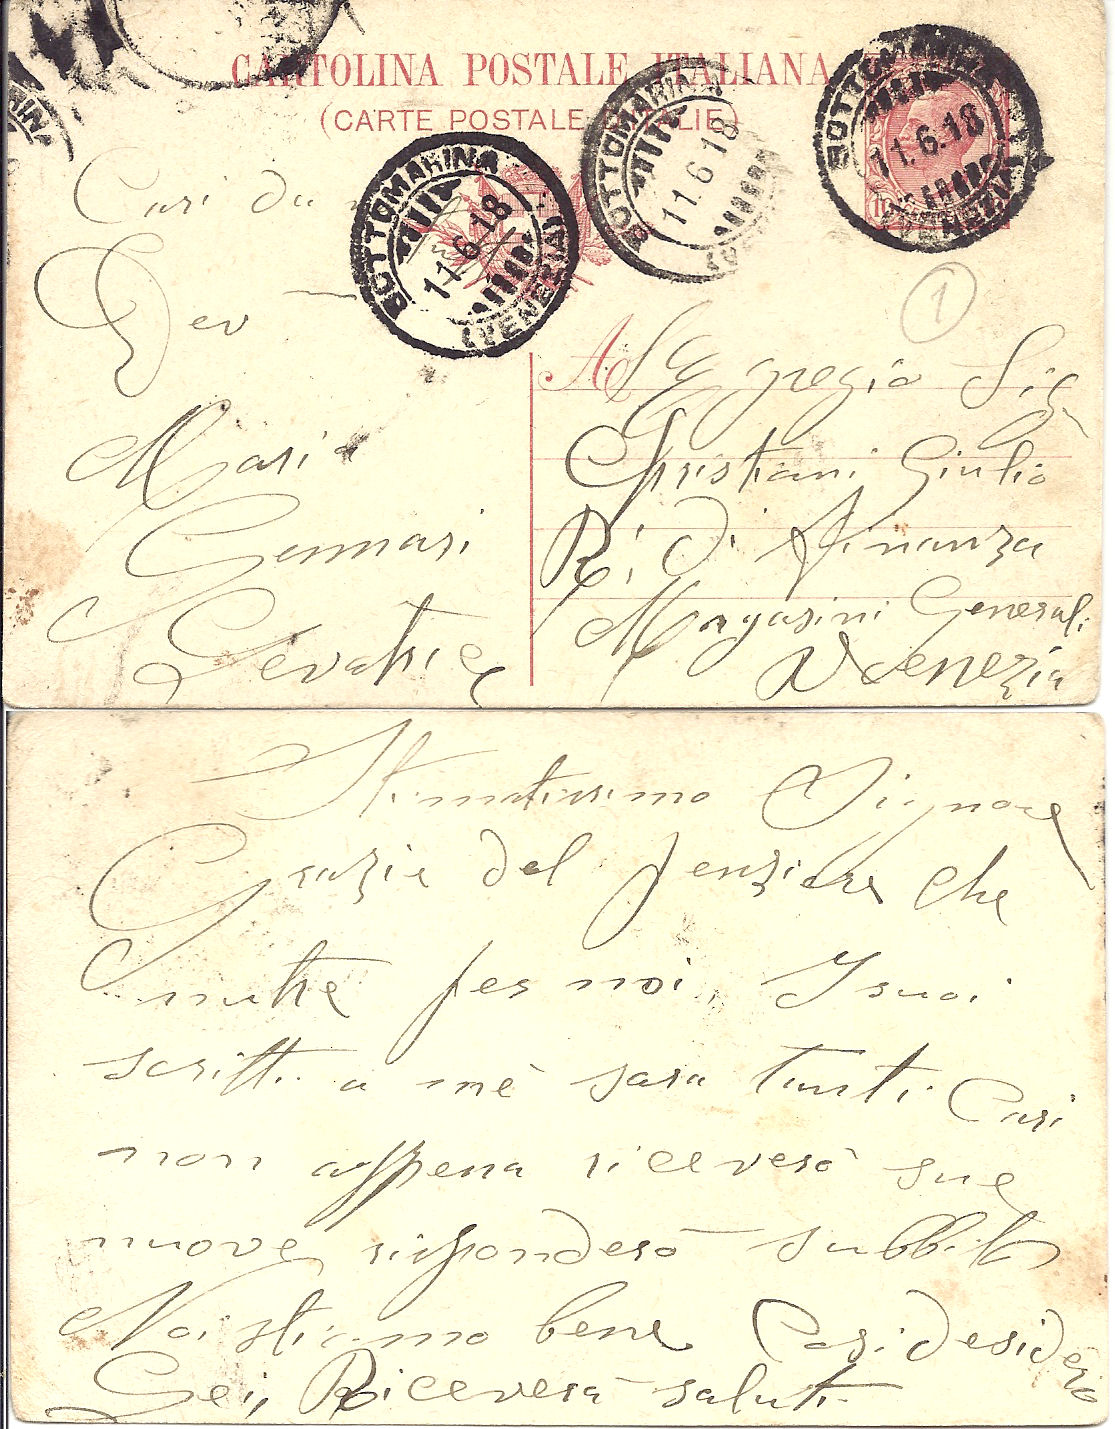 CARTOLINA POSTALE ITALIANA
(CARTE POSTALE D'ITALIE)
BOTTOMARINA
(VENEZIA)
11.6.18
BOTTOMARINA
11.6.18
BOTTOMARINA
(VENEZIA)
11.6.18
1
Cari da
Dev
Maria
Gennari
Levatrice
A Egregio Sig
Christiani Giulio
R. di Finanza
Magasini Generali
Venezia
Stimatissimo Signore
Grazie del penziere che
nutre per noi. I suoi
scritti a me sara tanti Cari
non appena riceverò sue
nuove risponderò subbito
Noi stiamo bene Cosi desidero
Lei, Riceverà saluti